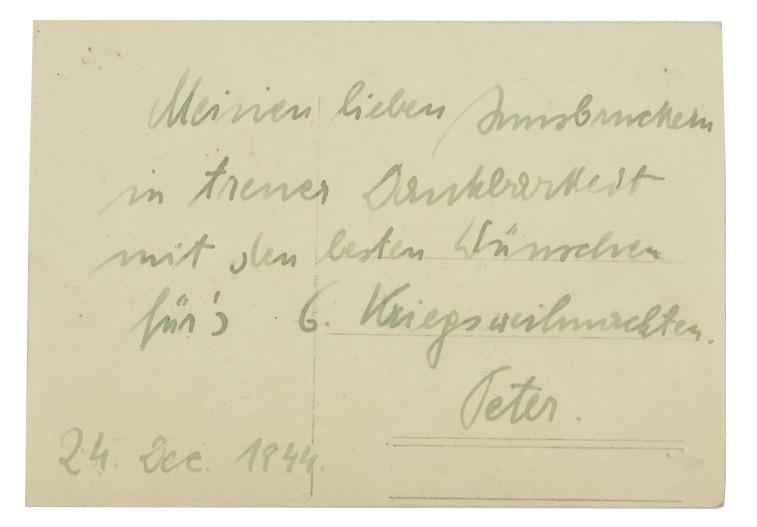 Meinen lieben Innsbruckern
in treuer Dankbarkeit
mit den besten Wünschen
für's 6. Kriegsweihnachten.
Peter.
24. Dec. 1944.